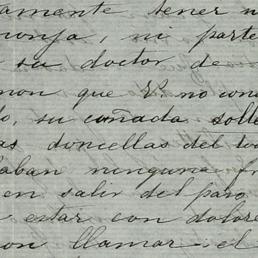 amente tener
monja, ni parte
su doctor de
mon que V. no con
o, su cuñada solte
as doncellas del to
aban ninguna fr
en salir del paso
estar con dolore
on llamar el